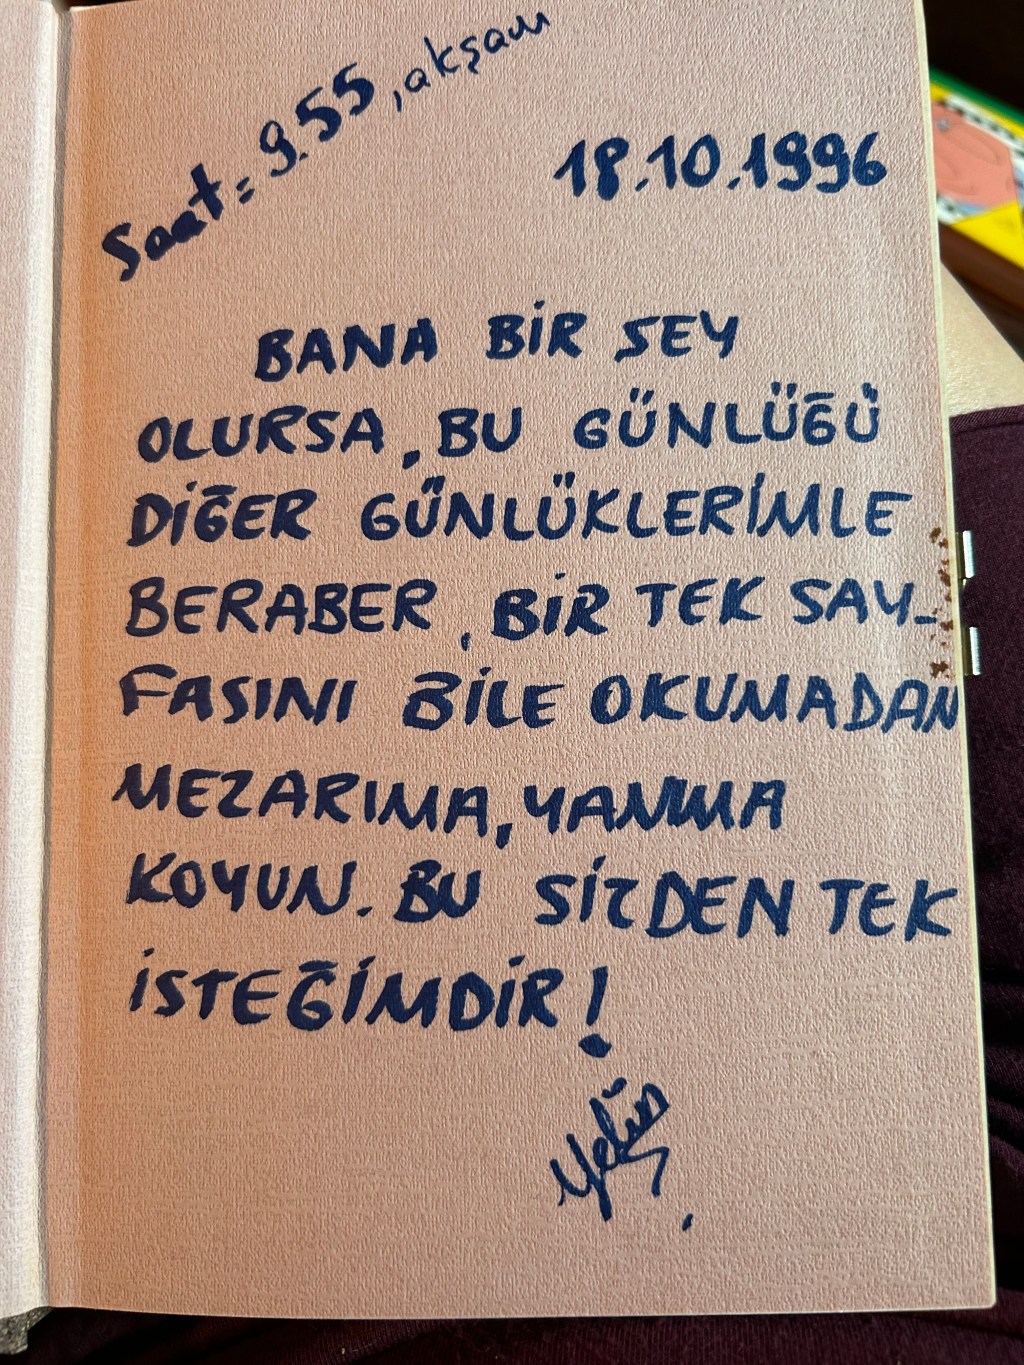 Saat = 9.55, akşam
18.10.1996
BANA BİR ŞEY
OLURSA, BU GÜNLÜĞÜ
DİĞER GÜNLÜKLERİMLE
BERABER, BİR TEK SAY-
FASINI BİLE OKUMADAN
MEZARIMA, YANIMA
KOYUN. BU SİZDEN TEK
İSTEĞİMDİR!